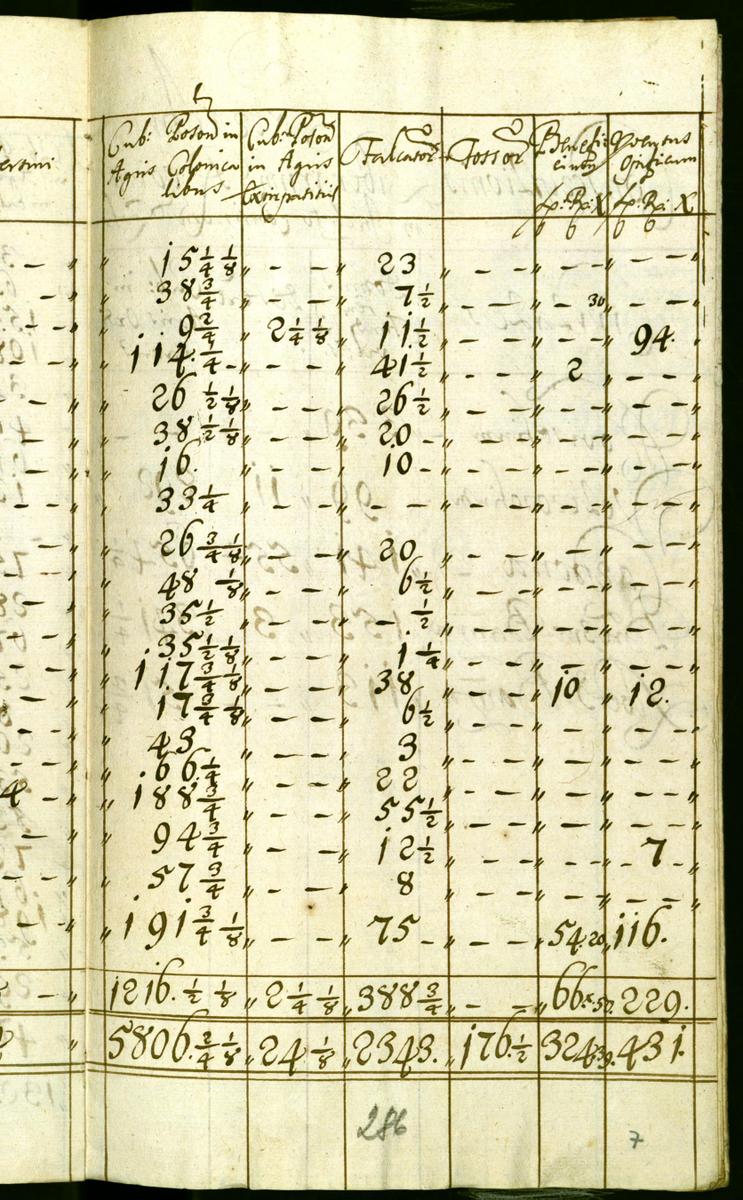 Cub: Poson in Agris Colonicalibus | Cub: Poson in Agris Extirpatitiis | Falcator | Fossor | Benefi cium | Proventus
fl: Rx: X | fl: Rx: X
15 1/4 1/8 | – – | 23 | – – | – – | – –
38 3/4 | – – | 7 1/2 | – – | – 30 | – –
9 2/4 | 2 1/4 1/8 | 11 1/2 | – – | – – | 94.
114. – | – – | 41 1/2 | – – | 2 | – –
26 1/2 1/8 | – – | 26 1/2 | – – | – – | – –
38 1/2 1/8 | – – | 20 – | – – | – – | – –
16. | – – | 10 – | – – | – – | – –
33 1/4 | – – | – – | – – | – – | – –
26 3/4 1/8 | – – | 20 | – – | – – | – –
48 1/8 | – – | 6 1/2 | – – | – – | – –
35 1/2 | – – | – 1/2 | – – | – – | – –
35 1/2 1/8 | – – | 1 1/4 | – – | – – | – –
117 3/4 1/8 | – – | 38 | – – | 10 | 12.
17 3/4 1/8 | – – | 6 1/2 | – – | – – | – –
43 | – – | 3 | – – | – – | – –
66 1/4 | – – | 22 | – – | – – | – –
4 – | 188 3/4 | – – | 55 1/2 | – – | – – | – –
94 3/4 | – – | 12 1/2 | – – | – – | 7 –
57 3/4 | – – | 8 | – – | – – | – –
191 3/4 1/8 | – – | 75 – | – – | 54. 20 | 116.
1216. 1/2 1/8 | 2 1/4 1/8 | 388 3/4 | – – | 66. 50. | 229.
5806. 3/4 1/8 | 24. 1/8 | 2343. | 176. 1/2 | 324 39. | 431.
286
7